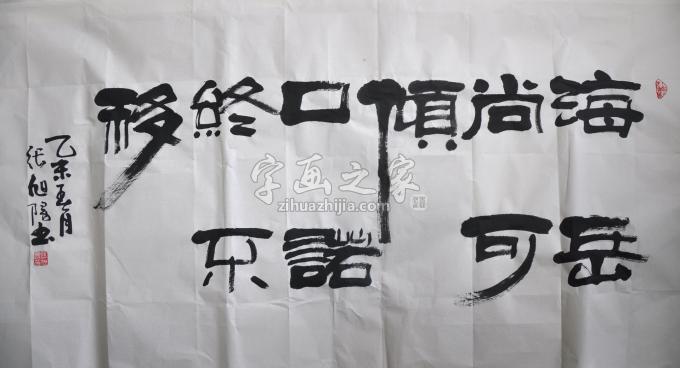 海岳
尚可
傾
口諾
終不
移
乙未五月
张旭书
字画之家
zihuazhijia.com